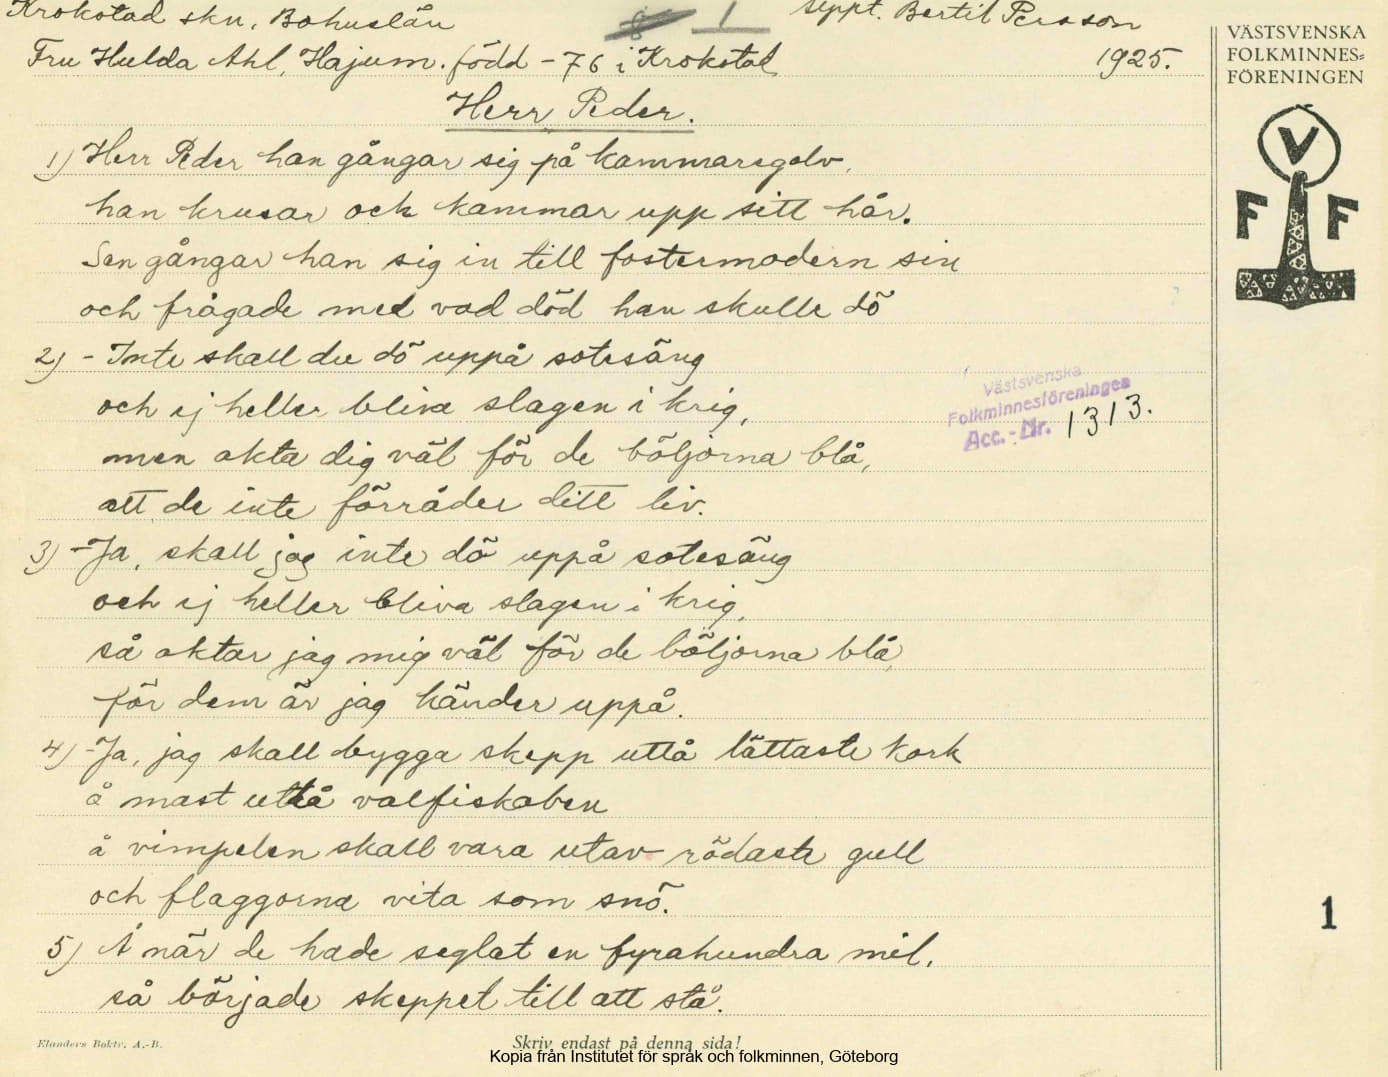 Krokstad skn, Bohuslän
1
Uppt. Bertil Persson
Fru Hulda Ahl, Hajum. född -76 i Krokstad
1925.
Herr Peder.
1) Herr Peder han gångar sig på kammaregolv,
han krusar och kammar upp sitt hår.
Sen gångar han sig in till fostermodern sin
och frågade med vad död han skulle dö
2) - Inte skall du dö uppå sotesäng
och ej heller bliva slagen i krig,
men akta dig väl för de böljorna blå,
att de inte förråder ditt liv.
3) - Ja, skall jag inte dö uppå sotesäng
och ej heller bliva slagen i krig,
så aktar jag mig väl för de böljorna blå,
för dem är jag händer uppå.
4) - Ja, jag skall bygga skepp uttå lättaste kork
å mast uttå valfiskaben
å vimpelen skall vara utav rödaste gull
och flaggorna vita som snö.
5) Å när de hade seglat en fyrahundra mil,
så började skeppet till att stå.
VÄSTSVENSKA
FOLKMINNES=
FÖRENINGEN
V
F F
Västsvenska
Folkminnesföreningen
Acc.-Nr. 1313.
1
Elanders Boktr. A.-B.
Skriv endast på denna sida!
Kopia från Institutet för språk och folkminnen, Göteborg